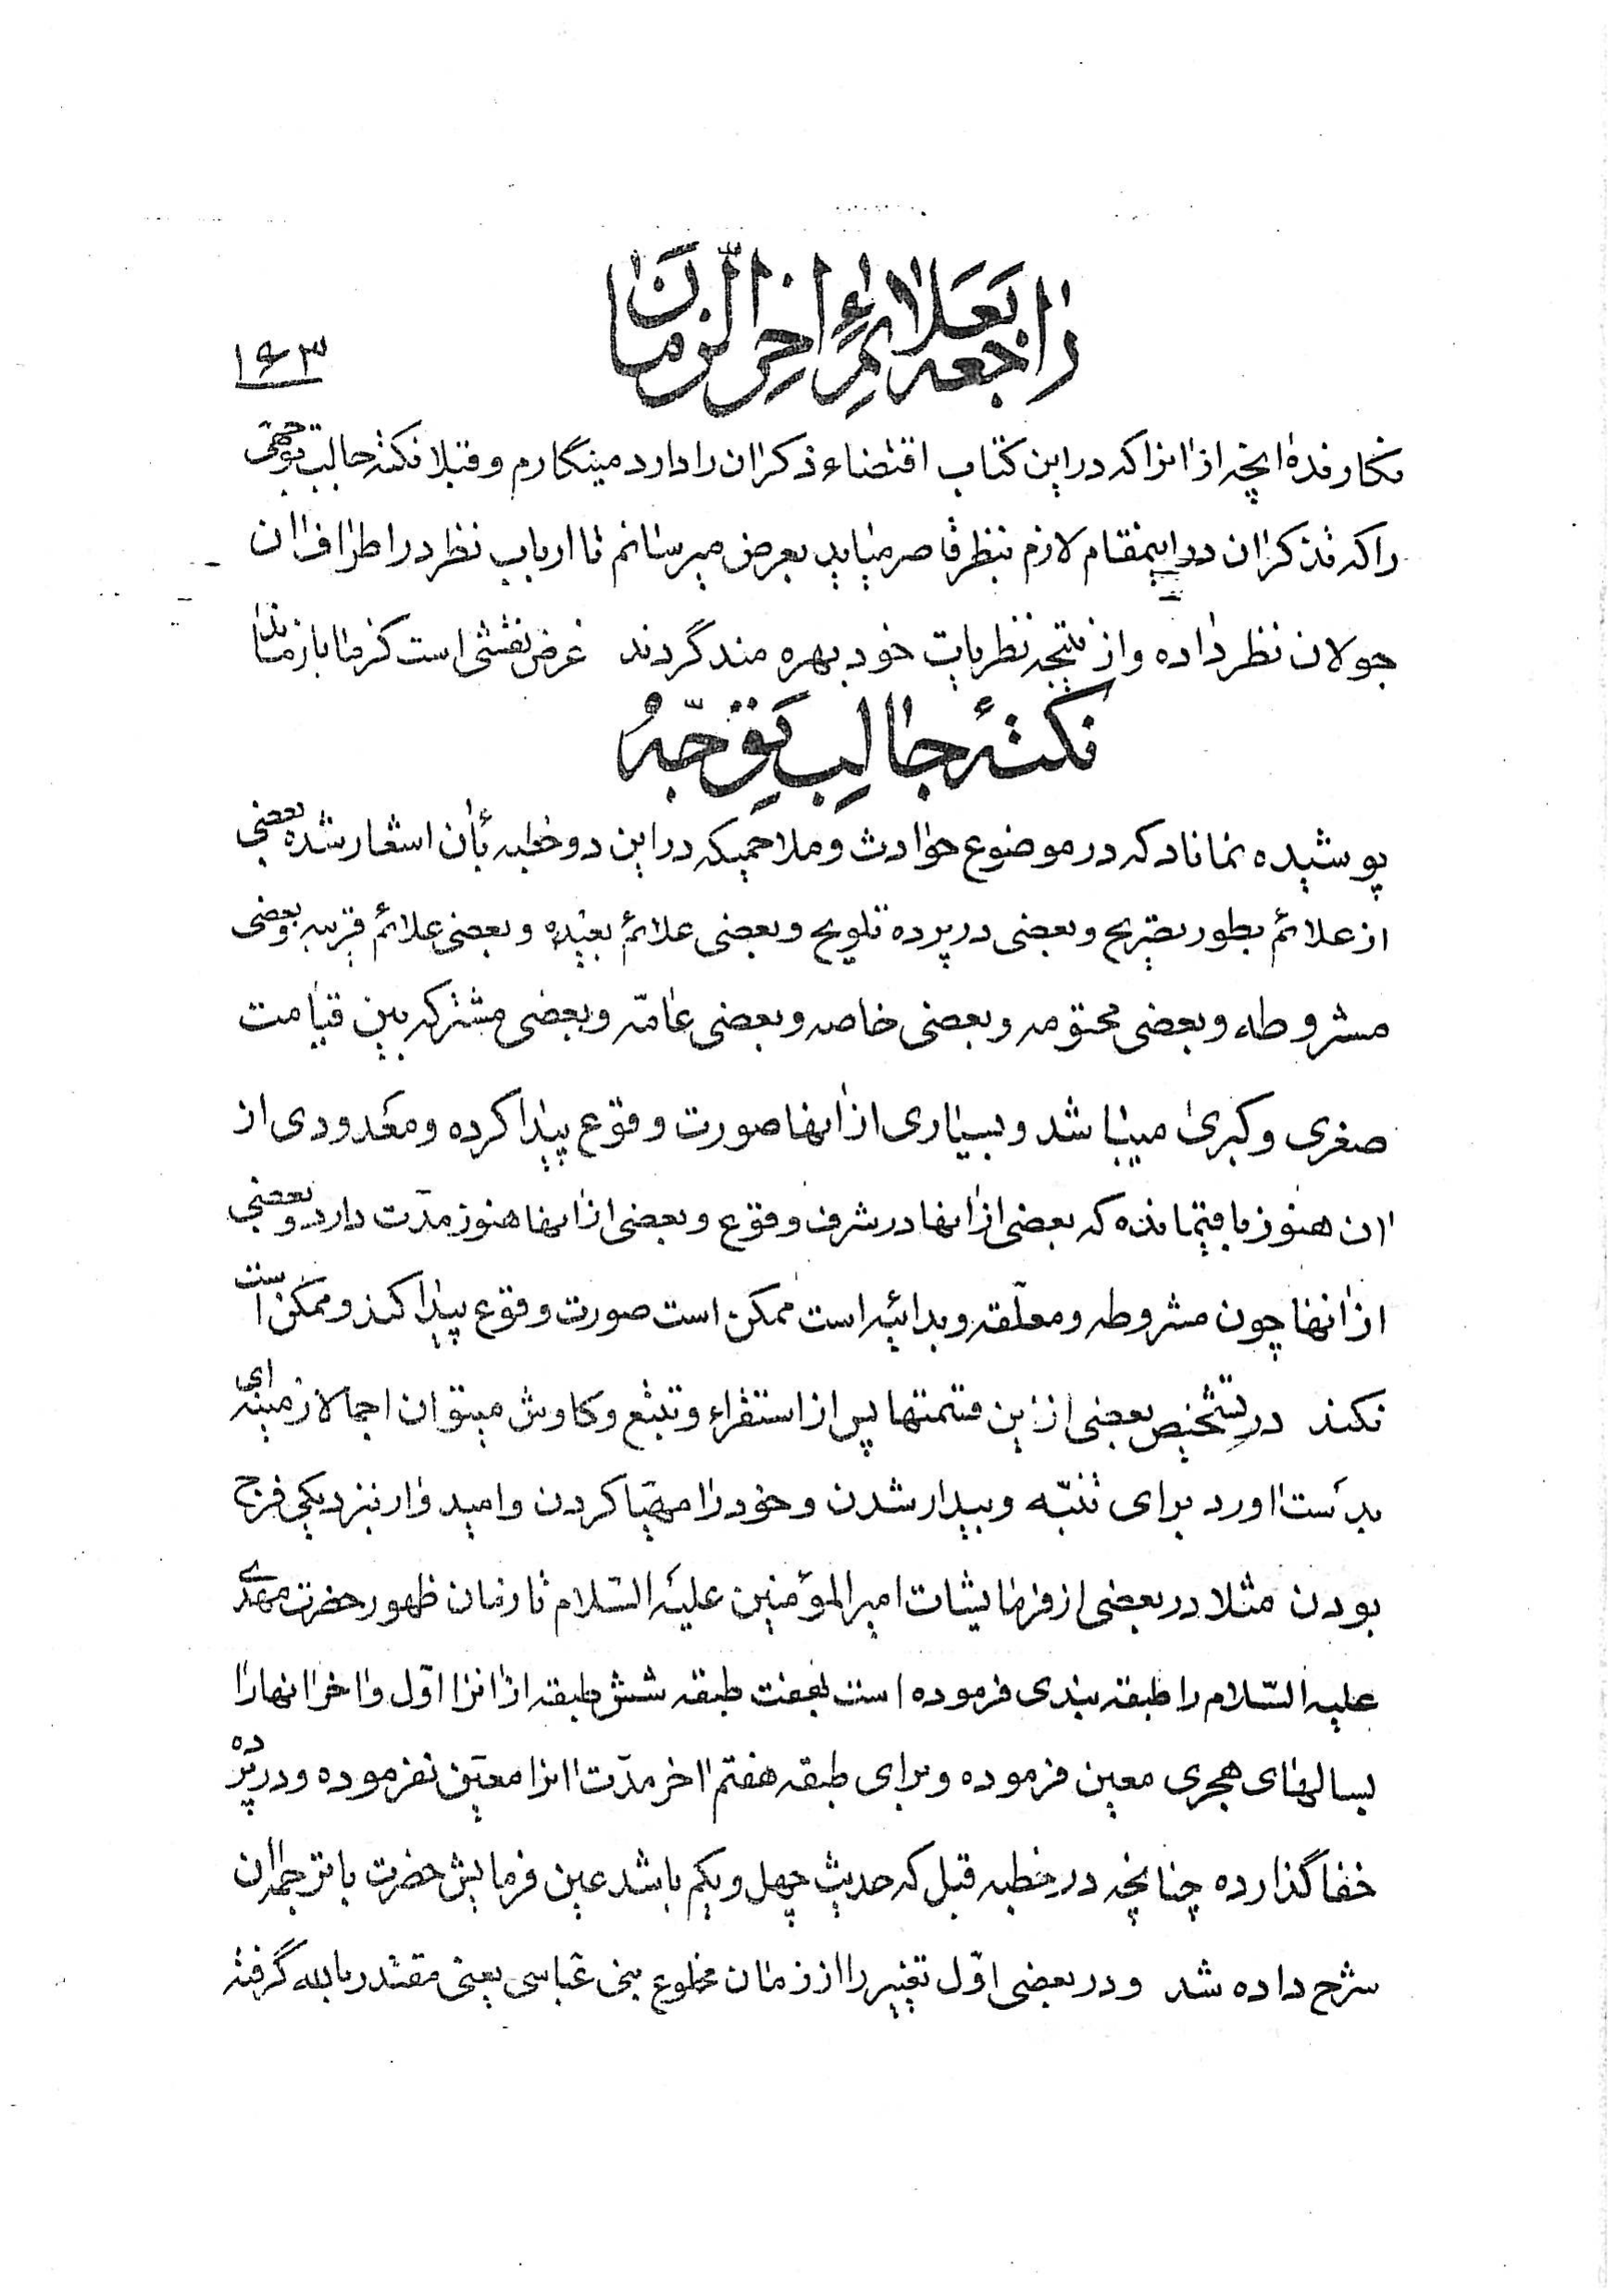 راجعه بعلائم اخر الزمان
۱۶۳
نگارنده انچه از انرا که در این کتاب اقتضاء ذکر ان را دارد مینگارم و قبلا نکته جالب توجهی
را که تذکر ان در اینمقام لازم بنظر قاصر میاید بعرض میرسانم تا ارباب نظر در اطراف ان
جولان نظر داده و از نتیجه نظریات خود بهره مند گردند غرض نقشی است کز ما باز ماند
نکتهٔ جالب توجّه
پوشیده نماناد که در موضوع حوادث و ملاحمیکه در این دو خطبه بأن اشعار شده بعضی
از علائم بطور تصریح و بعضی در پرده تلویح و بعضی علائم بعیده و بعضی علائم قریبه و بعضی
مشروطه و بعضی محتومه و بعضی خاصه و بعضی عامّه و بعضی مشترکه بین قیامت
صغری و کبری میباشد و بسیاری از انها صورت وقوع پیدا کرده و معدودی از
ان هنوز باقیمانده که بعضی از انها در شرف وقوع و بعضی از انها هنوز مدّت دارد و بعضی
از انها چون مشروطه و معلّقه و بدائیه است ممکن است صورت وقوع پیدا کند و ممکن است
نکند در تشخیص بعضی از این قسمتها پس از استقراء و تتبع و کاوش میتوان اجمالا زمینه ای
بدست اورد برای تنبّه و بیدار شدن و خود را مهیّا کردن و امیدوار بنزدیکی فرج
بودن مثلا در بعضی از فرمایشات امیر المؤمنین علیه السّلام تا زمان ظهور حضرت مهدی
علیه السّلام را طبقه بندی فرموده است بهفت طبقه شش طبقه از انرا اوّل و اخر انها را
بسالهای هجری معین فرموده و برای طبقه هفتم اخر مدّت انرا معیّن نفرموده و در پرده
خفا گذارده چنانچه در خطبه قبل که حدیث چهل و یکم باشد عین فرمایش حضرت با ترجمه ان
شرح داده شد و در بعضی اوّل تغییر را از زمان مخلوع بنی عباسی یعنی مقتدر بالله گرفته